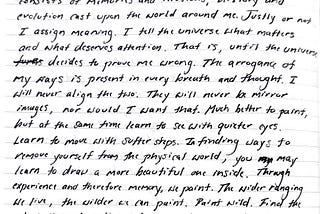 consists of memories and
evolution cast upon the world around me. Justly or not
I assign meaning. I tell the universe what matters
and what deserves attention. That is, until the universe
decides to prove me wrong. The arrogance of
my ways is present in every breath and thought. I
will never align the two. They will never be mirror
images, nor would I want that. Much better to paint,
but at the same time learn to see with quieter eyes.
Learn to move with softer steps. In finding ways to
remove yourself from the physical world, you may
learn to draw a more beautiful one inside. Through
experience and therefore memory, we paint. The wider ranging
we live, the wilder we can paint. Paint wild. Find the